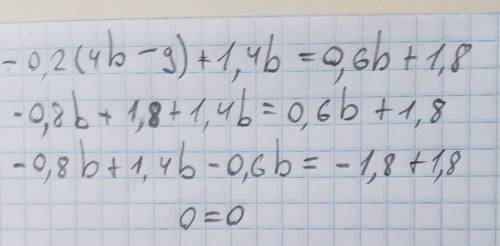 -0,2(4b-9)+1,4b=0,6b+1,8
-0,8b+1,8+1,4b=0,6b+1,8
-0,8b+1,4b-0,6b=-1,8+1,8
0=0